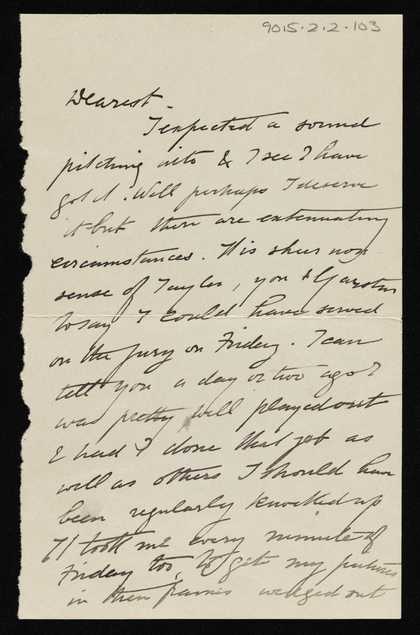 9015.2.2.103
Dearest -
I expected a sound
pitching into & I see I have
got it. Well perhaps I deserve
it but there are extenuating
circumstances. It is sheer non
sense of Tayler, you & Garstin
to say I could have served
on the Jury on Friday. I can
tell you a day or two ago I
was pretty well played out
& had I done that job as
well as others I should have
been regularly knocked up
It took me every minute of
Friday too, to get my pictures
in their frames wedged out